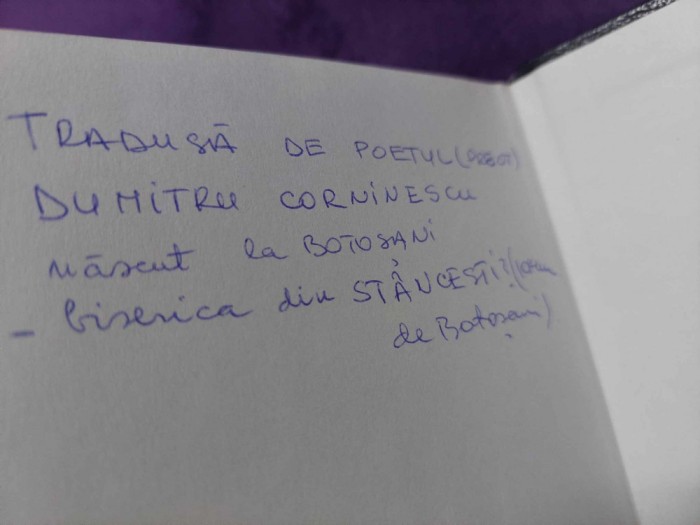 TRADUSĂ DE POETUL (PREOT)
DUMITRU CORNINESCU
născut la BOTOȘANI
- biserica din STÂNCEȘTI? (10 km
de Botoșani)